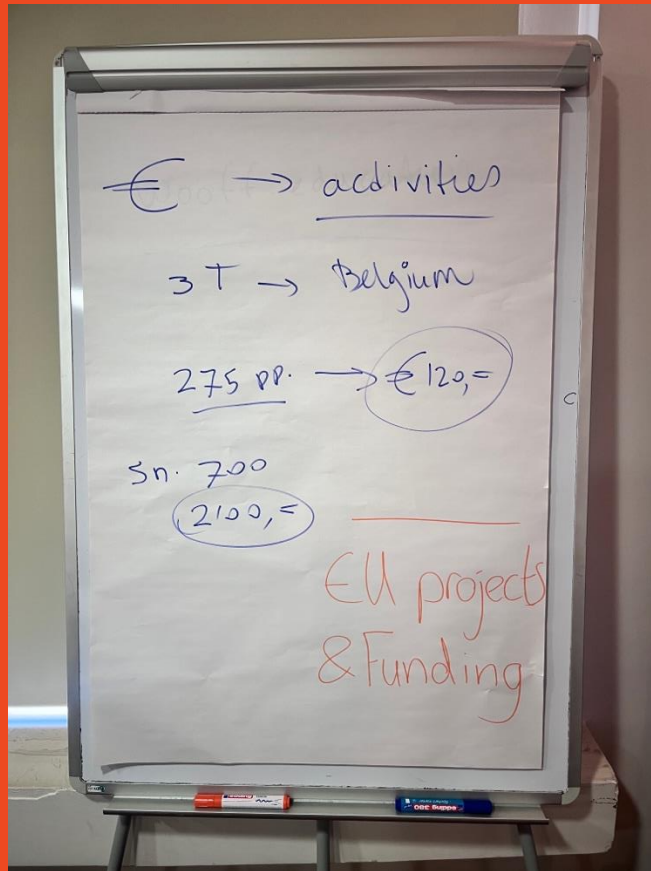 € → activities
3T → Belgium
275 pp. → € 120,=
Sn. 700
2100,=
EU projects
& Funding
edding 380